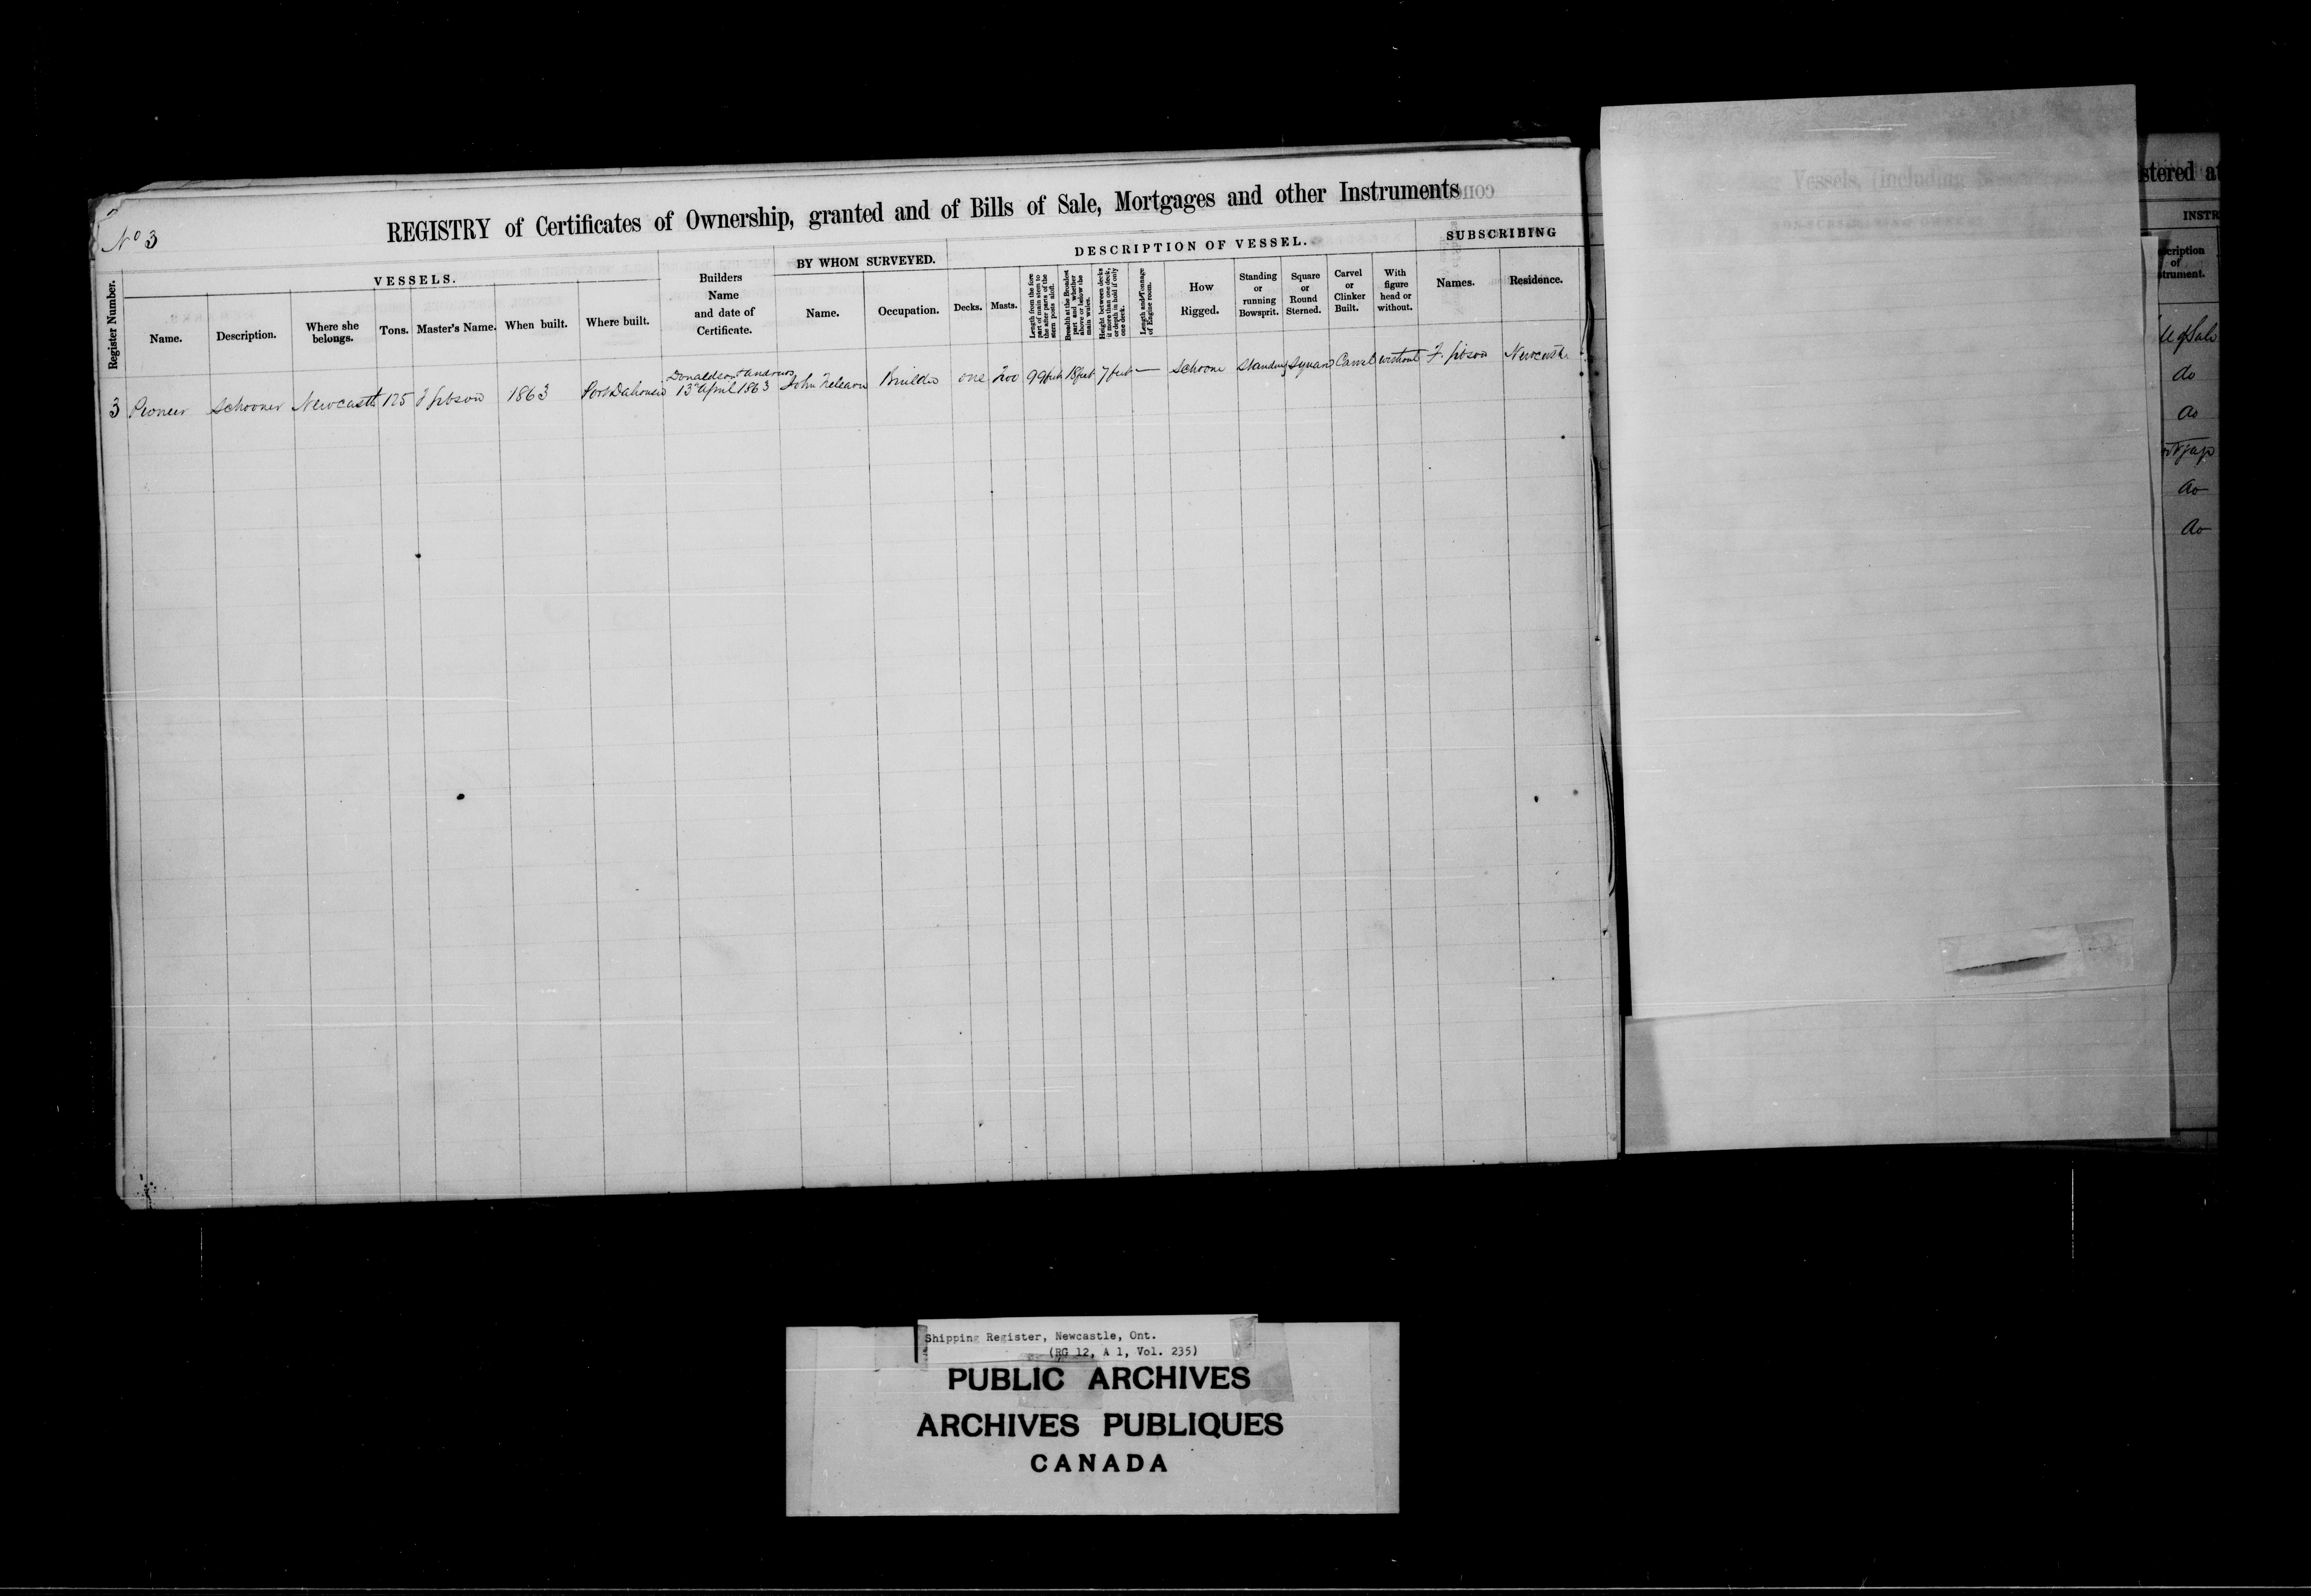 No 3
REGISTRY of Certificates of Ownership, granted and of Bills of Sale, Mortgages and other Instruments
Register Number.
VESSELS.
Name.
Description.
Where she belongs.
Tons.
Master's Name.
When built.
Where built.
Builders
Name
and date of
Certificate.
BY WHOM SURVEYED.
Name.
Occupation.
DESCRIPTION OF VESSEL.
Decks.
Masts.
Length from the fore
part of main stem to
the after parts of the
stern posts aloft.
Breadth at the Broadest
part and whether
above or below the
main wales.
Height between decks
if more than one deck,
or depth in hold if only
one deck.
Length and Tonnage
of Engine room.
How
Rigged.
Standing
or
running
Bowsprit.
Square
or
Round
Sterned.
Carvel
or
Clinker
Built.
With
figure
head or
without.
SUBSCRIBING
Names.
Residence.
3 Pioneer Schooner Newcastle 125 F Gibson 1863 Port Dalhousie
Donaldson & Andrews
13th April 1863
John Builder one Two 99 feet 18 feet 7 feet — Schooner Standing Square Carvel without F. Gibson Newcastle
Vessels, (including
stered at
INSTR
scription
of
strument.
ll of Sale
do
do
do
do
Shipping Register, Newcastle, Ont.
(RG 12, A 1, Vol. 235)
PUBLIC ARCHIVES
ARCHIVES PUBLIQUES
CANADA